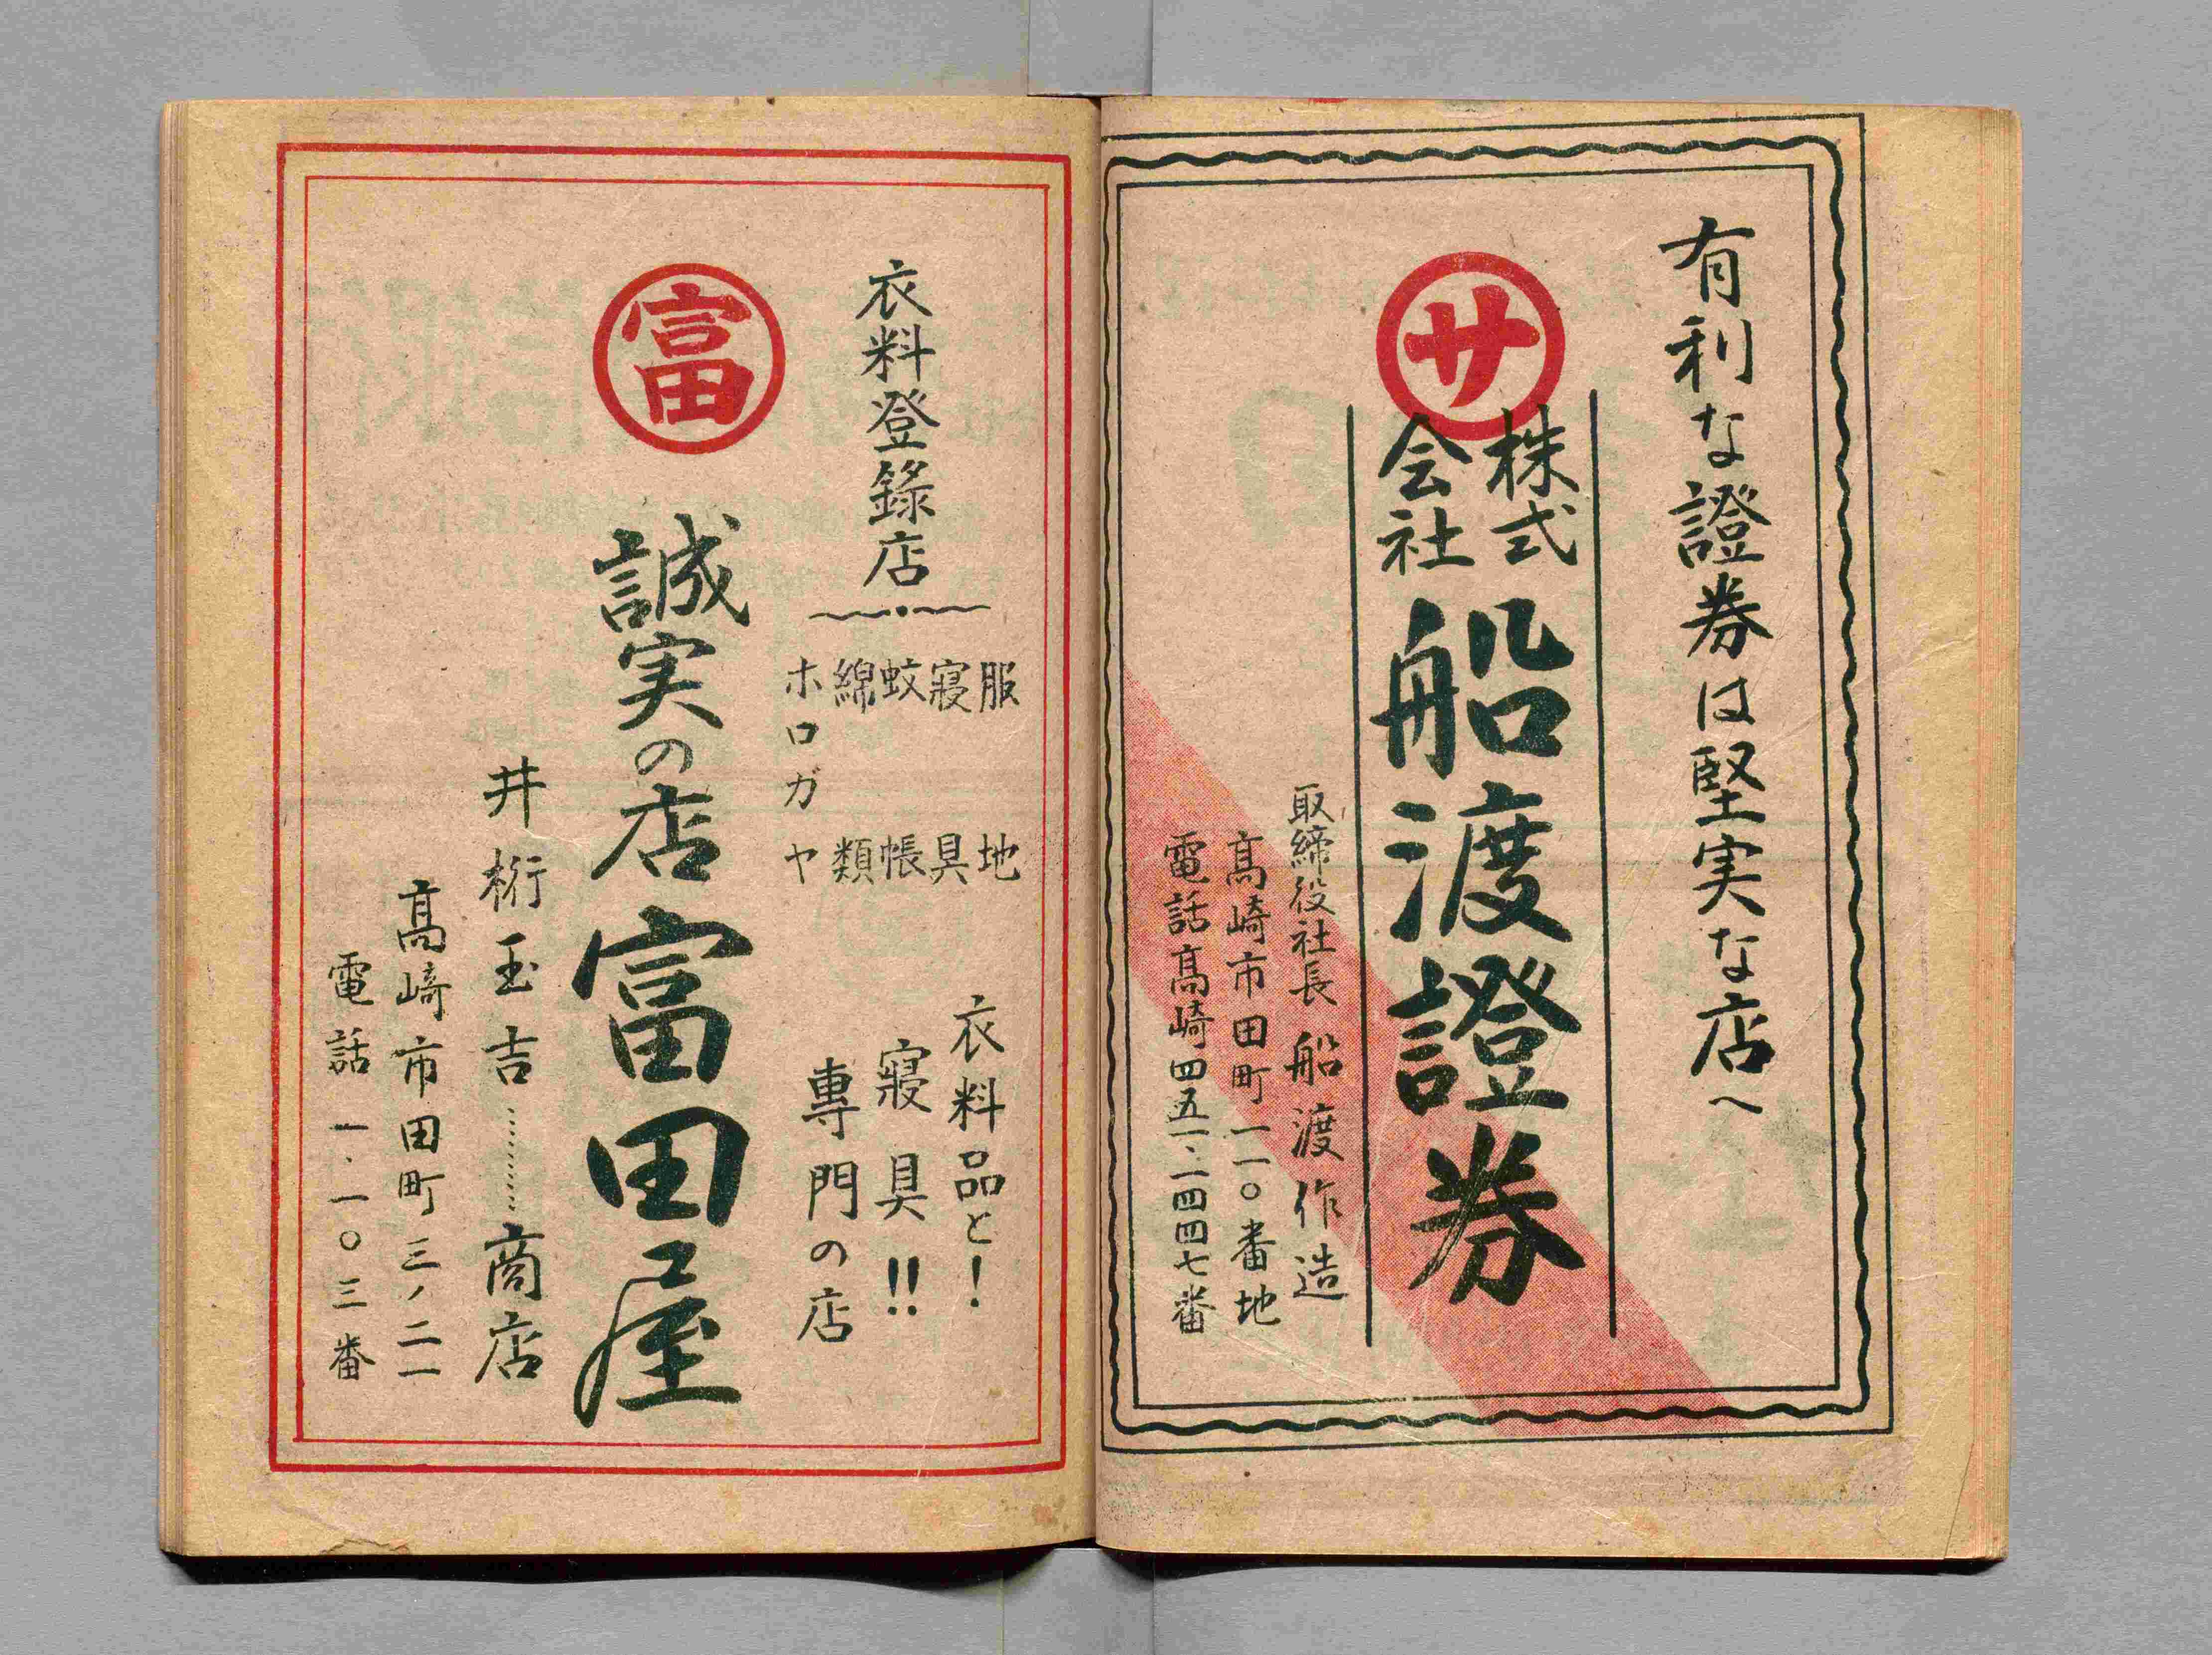 有利な證券は堅実な店へ
サ
株式
会社
船渡證券
取締役社長 船渡作造
高崎市田町一一〇番地
電話高崎四五一、一四四七番
衣料登錄店
服地
寢具
蚊帳
綿類
ホロガヤ
衣料品と!
寢具!!
專門の店
富
誠実の店富田屋
井桁玉吉………商店
高崎市田町三ノ二一
電話一、一〇三番